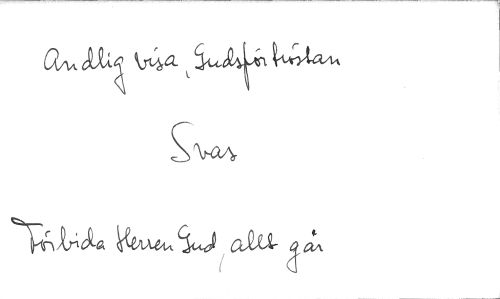 Andlig visa, Gudsförtröstan
Svar
Förbida Herren Gud, allt går